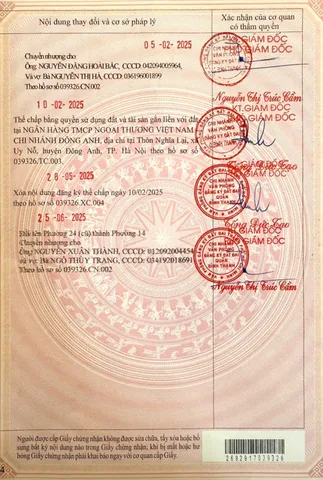 Nội dung thay đổi và cơ sở pháp lý
Xác nhận của cơ quan
có thẩm quyền
05-02-2025
Chuyển nhượng cho
Ông NGUYỄN ĐẶNG HOÀI BẮC, CCCD: 042094005964,
Và vợ: Bà NGUYỄN THỊ HÀ, CCCD: 06196001899
Theo hồ sơ số 039326.CN.002
GIÁM ĐỐC
Nguyễn Thị Trúc Cầm
10-02-2025
KT.GIÁM ĐỐC
GIÁM ĐỐC
Thế chấp bằng quyền sử dụng đất và tài sản gắn liền với đất
tại NGÂN HÀNG TMCP NGOẠI THƯƠNG VIỆT NAM
CHI NHÁNH ĐÔNG ANH, địa chỉ tại Thôn Nghĩa Lại, xã
Uy Nỗ, huyện Đông Anh, TP. Hà Nội theo hồ sơ số
039326.TC.003.
26-05-2025
GIÁM ĐỐC
GIÁM ĐỐC
CHI NHÁNH
VĂN PHÒNG
ĐĂNG KÝ ĐẤT ĐAI
QUẬN
BÌNH THẠNH
Xóa nội dung đăng ký thế chấp ngày 10/02/2025
theo hồ sơ số 039326.XC.004
25-06-2025
GIÁM ĐỐC
GIÁM ĐỐC
Đổi lớn Phường 24 (cũ) thành Phường 14
Chuyển nhượng cho
Ông NGUYỄN XUÂN THÀNH, CCCD:
và vợ: Bà NGÔ THÙY TRANG, CCCD: 034192018691
Theo hồ sơ số 039326.CN.002
CHI NHÁNH
VĂN PHÒNG
ĐĂNG KÝ ĐẤT ĐAI
QUẬN
BÌNH THẠNH
Nguyễn Thị Trúc Cầm
Người được cấp Giấy chứng nhận không được sửa chữa, tẩy xóa hoặc bổ
sung bất kỳ nội dung nào trong Giấy chứng nhận; khi bị mất hoặc hư
hỏng Giấy chứng nhận phải khai báo ngay với cơ quan cấp Giấy.
4